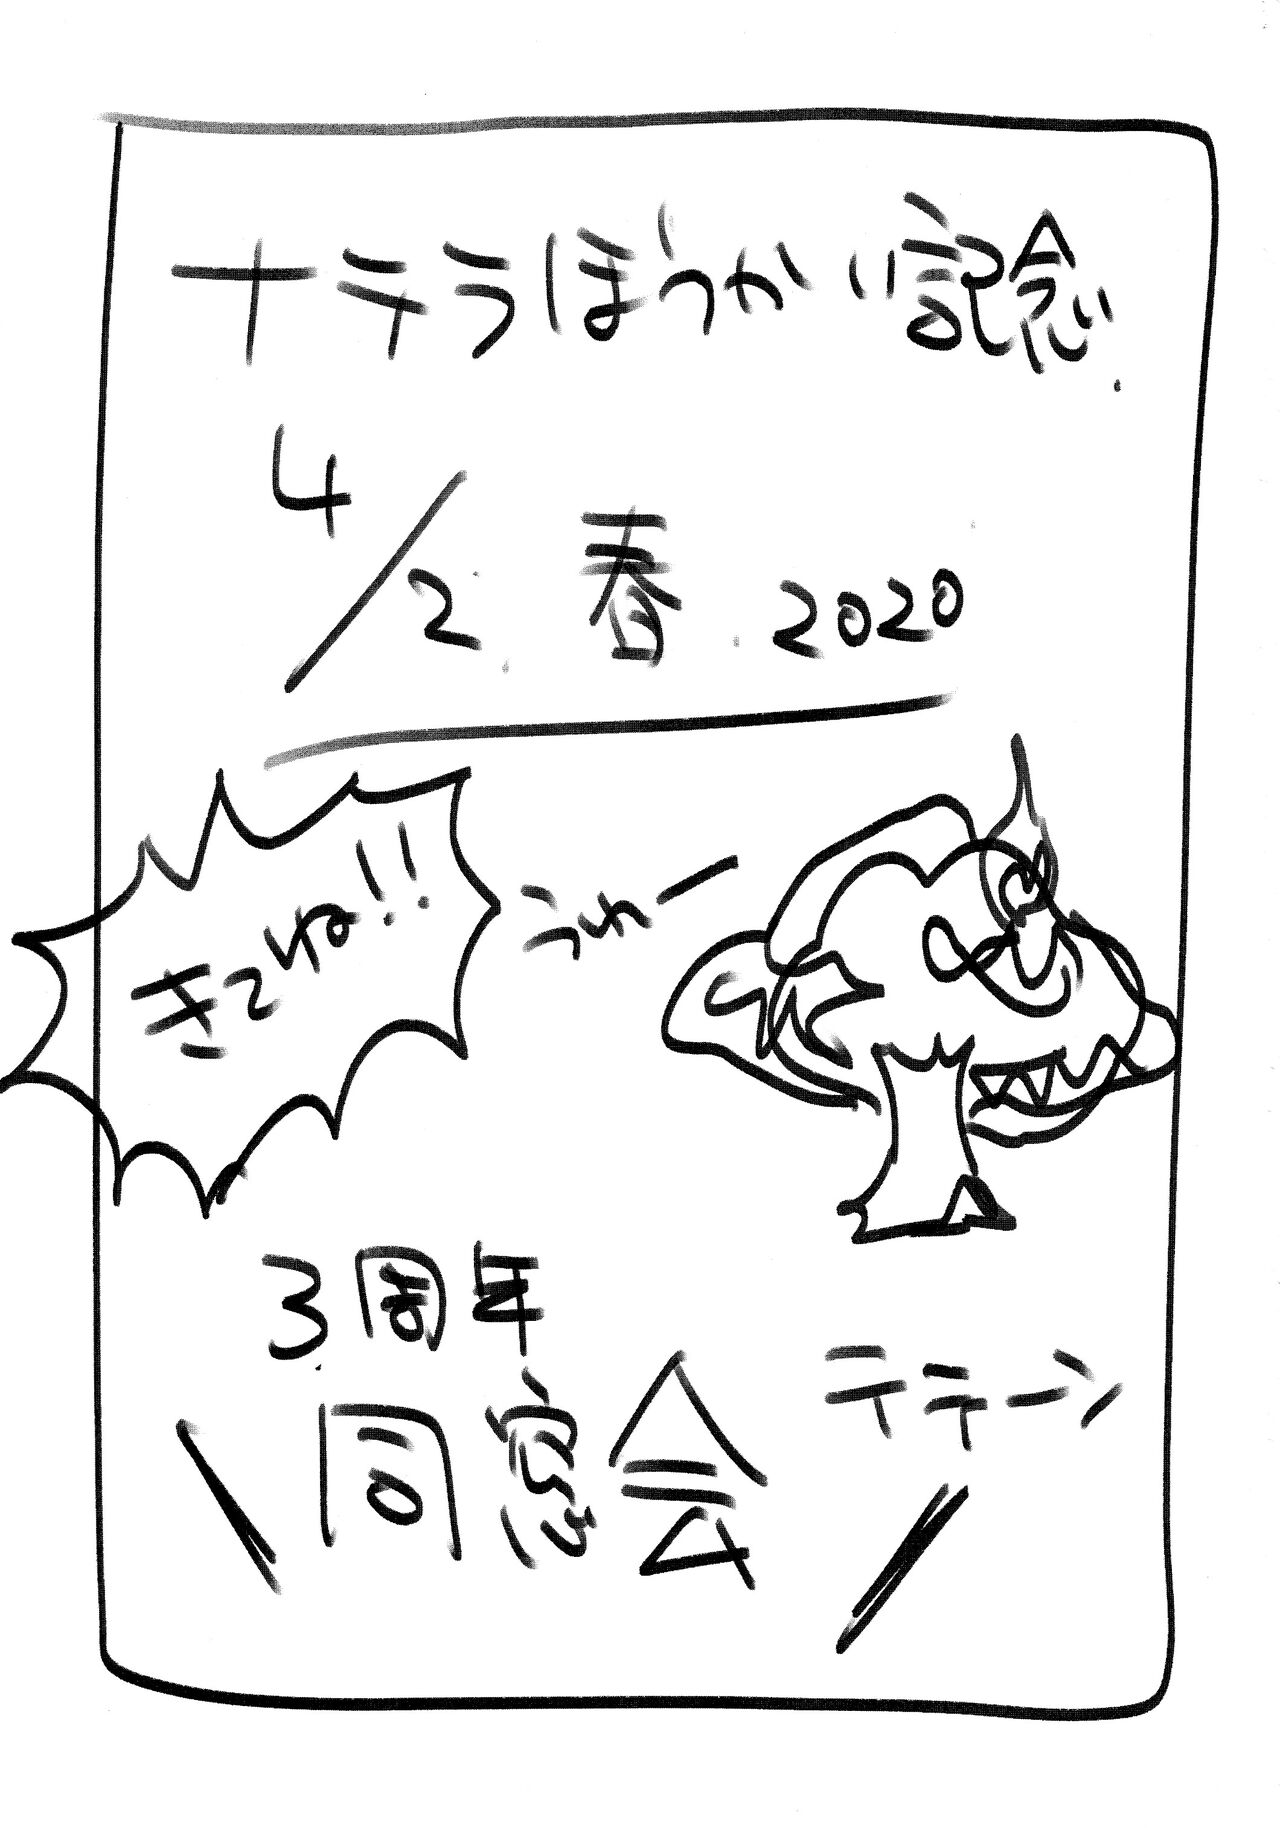 十テラほうかい記念
4/2 春 2020
きてね!!
うれー
3周年
テテーン
\ 同窓会 /